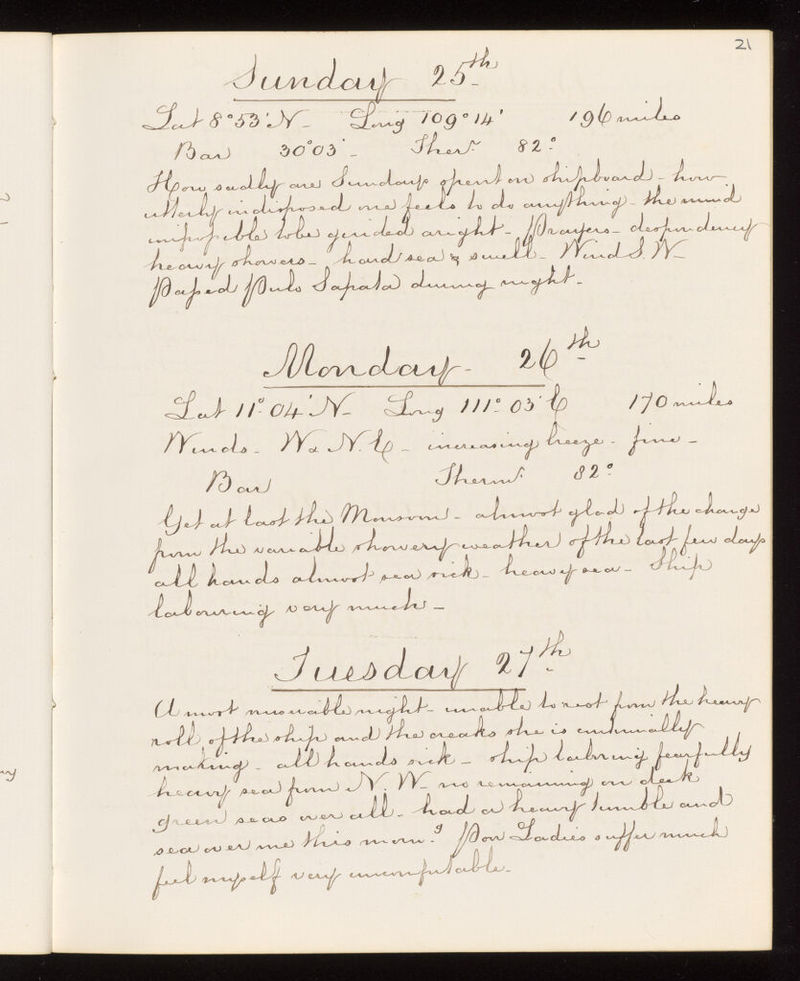 21
Sunday 25th
Lat 8°53'N - Long 109°14' 196 miles
Bar 30°03 - Ther.r 82°
How sadly are Sundays spent on shipboard - how
utterly indisposed one feels to do anything - the mind
impossible to be guided aright - Prayers - despondency
heavy showers - hard sea & swell - Wind S.W -
Passed Pulo Sapata during night -
Monday - 26th
Lat 11°.04' N - Long 111°.03' E 170 miles
Winds - N.E - increasing breeze - fine -
Bar Therm.r 82°
Get at last the Monsoon - almost glad of the change
from the variable showery weather of the last few days
all hands almost sea sick - heavy sea - Ship
labouring very much -
Tuesday 27th
A most miserable night - unable to rest from the heavy
roll of the ship and the creaks she is continually
making - all hands sick - ship laboring fearfully
heavy sea from N.W - no remaining on deck
green seas over all - had a heavy tumble and
sea over me this morn.g Poor Ladies suffer much
feel myself very uncomfutable -